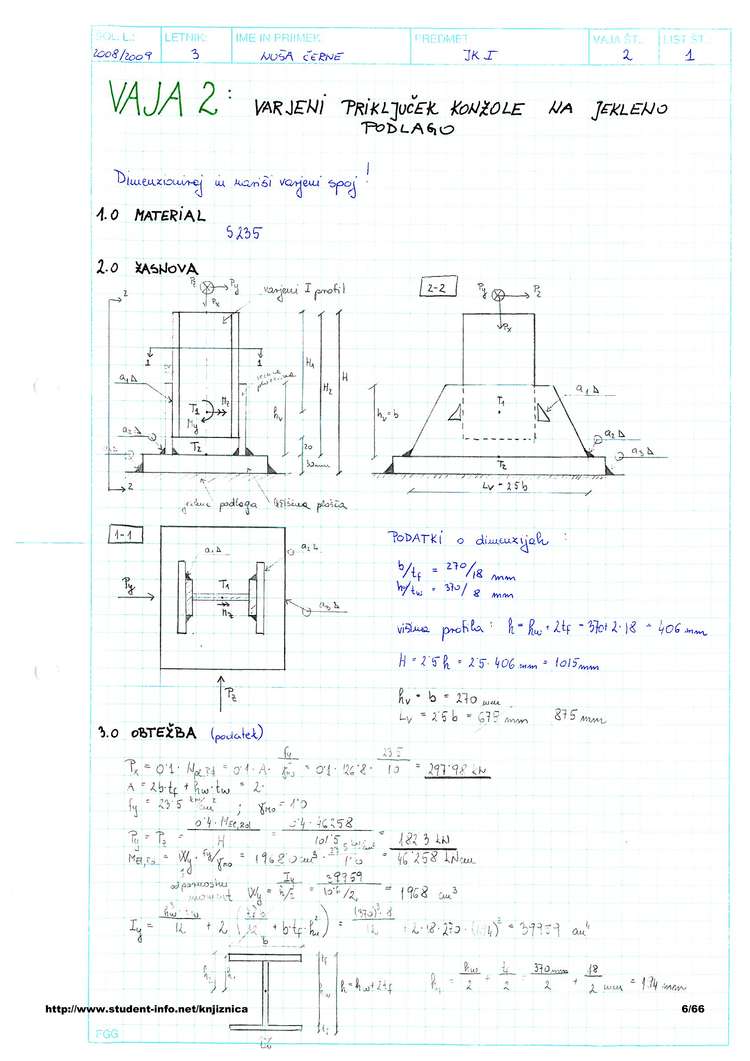 ŠOL. L.: LETNIK: IME IN PRIIMEK: PREDMET VAJA ŠT. LIST ŠT.
2008/2009 3 NUŠA ČERNE JK I 2 1
VAJA 2: VARJENI PRIKLJUČEK KONZOLE NA JEKLENO
PODLAGO
Dimenzioniraj in nariši varjeni spoj!
1.0 MATERIAL
S235
2.0 ZASNOVA
varjeni I profil
2-2
Py
Pz
Px
Py
Pz
Px
2
1
1
H1
H2
H
hv
a1
a2
T1
Mz
My
T2
20
30mm
2
hv=b
T1
T2
a1
a2
a3
Lv = 2.5b
podloga plošča
1-1
a1
a2
a3
T1
Mz
Py
Pz
PODATKI o dimenzijah:
b/tf = 270/18 mm
hw/tw = 370/8 mm
višina profila: h = hw + 2tf = 370+2·18 = 406 mm
H = 2.5h = 2.5·406 mm = 1015 mm
hv = b = 270 mm
Lv = 2.5b = 675 mm 875 mm
3.0 OBTEŽBA (podatek)
Px = 0.1·Npl,Rd = 0.1·A· fy/γM0 = 0.1·126.8· 23.5/1.0 = 297.98 kN
A = 2b·tf + hw·tw = 2·
fy = 23.5 kN/cm² ; γM0 = 1.0
Py = Pz = 0.4·MEl,Rd / H = 0.4·46258 / 101.5 = 182.3 kN
MEl,Rd = Wy· fy/γM0 = 1968.0 cm³· 23.5 kN/cm² / 1.0 = 46258 kNcm
odpornostni
moment
Wy = Iy / h/2 = 39959 / = 1968 cm³
Iy = / 12 + 2 ( / 12 + b·tf· ²) = (370)³·8 / 12 + 2·18·270·(194)² = 39959 cm⁴
b
tf
hw
h = hw+2tf
tf
= hw/2 + tf/2 = 370mm/2 + 18/2 mm = 194 mm
http://www.student-info.net/knjiznica
6/66
FGG